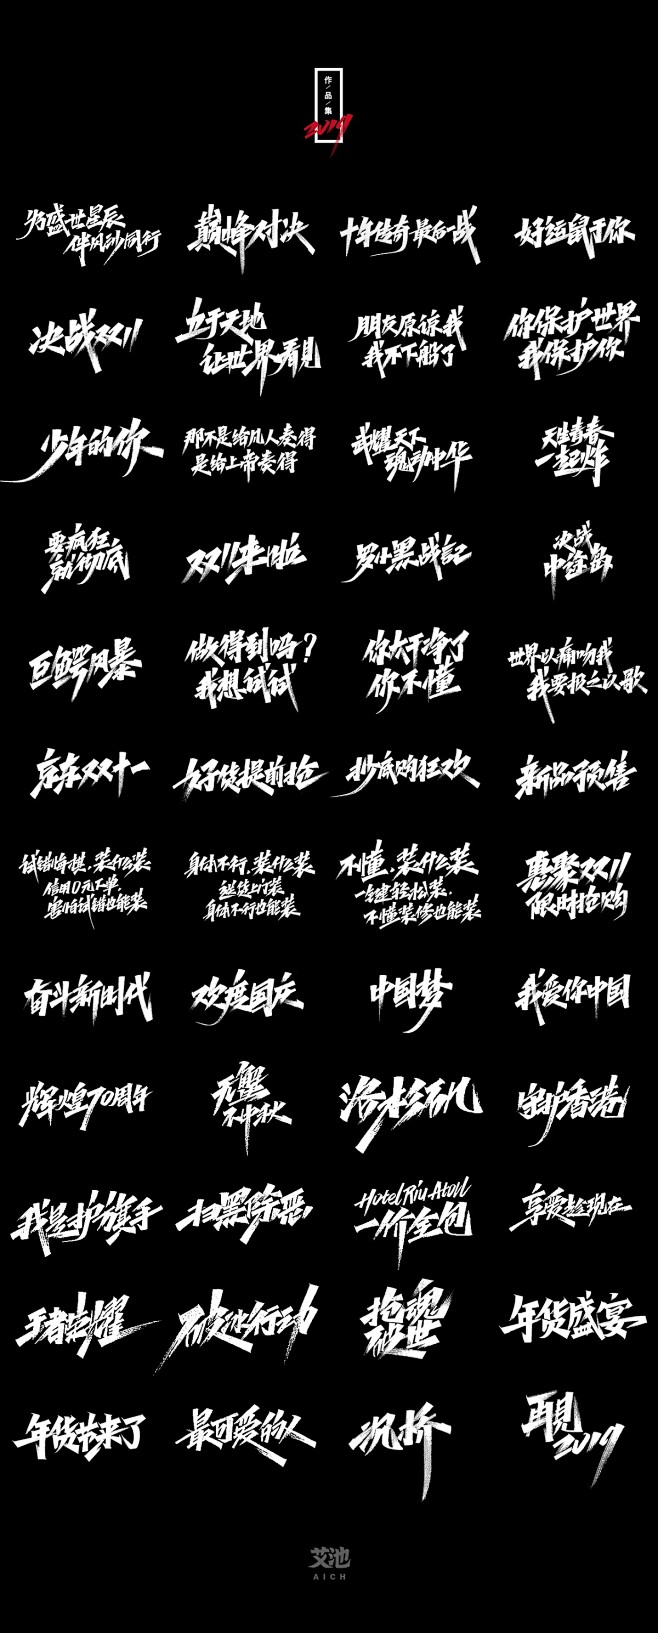 作/品/集
2019
为盛世星辰
伴风沙同行
巅峰对决
十年传奇最后一战
好运鼠于你
决战双11
立于天地
让世界看見
朋友原谅我
我不下船了
你保护世界
我保护你
少年的你
那不是给凡人奏得
是给上帝奏得
武耀天下
魂动中华
天生青春
一起炸
要疯狂
就彻底
双11来啦
罗小黑战記
决战
中途岛
巨鳄风暴
做得到吗?
我想试试
你太干净了
你不懂
世界以痛吻我
我要报之以歌
京东双十一
好货提前抢
抄底购狂欢
新品预售
试错悔棋,装什么装
信用0元下单,
害怕试错也能装
身体不行,装什么装
送货上门装
身体不行也能装
不懂,装什么装
一键轻松装,
不懂装修也能装
惠聚双11
限时抢购
奋斗新时代
欢度国庆
中国梦
我爱你中国
辉煌70周年
无蟹
不中秋
洛杉矶
守护香港
我是护旗手
扫黑除恶
Hotel Riu Atoll
一价全包
享受趁现在
王者荣耀
破冰行动
抢魂
破世
年货盛宴
年货节来了
最可爱的人
枫桥
再見
2019
艾池
AICH